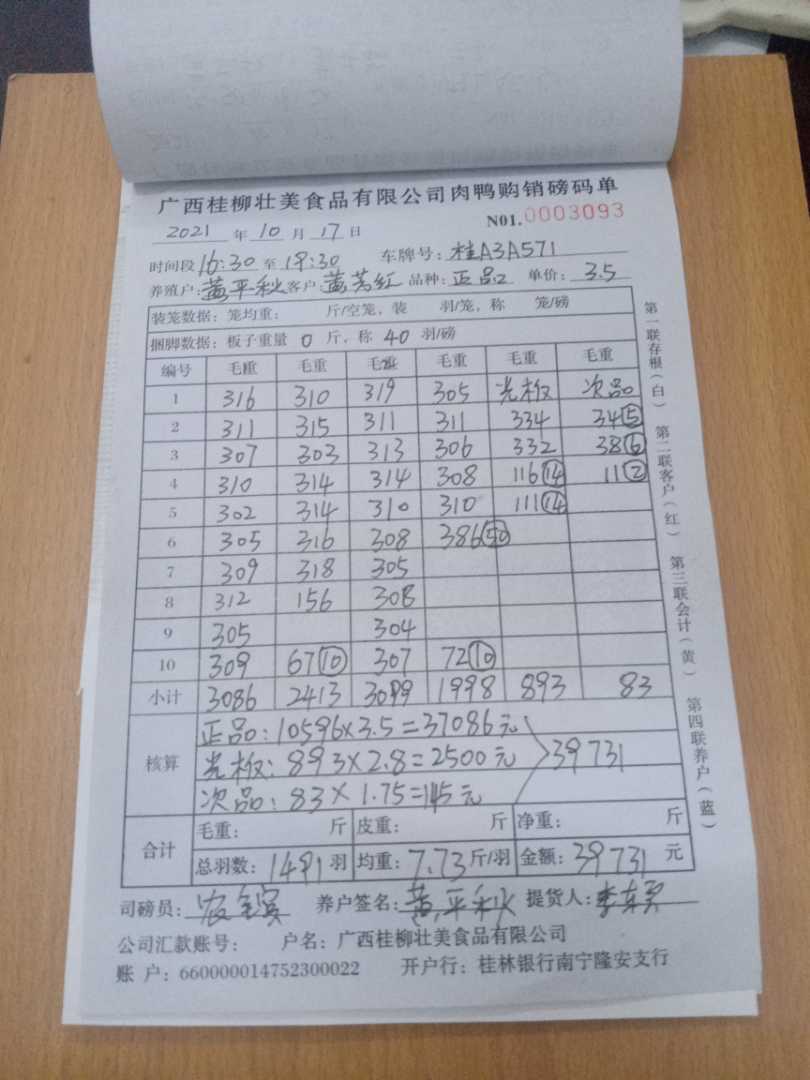 广西桂柳壮美食品有限公司肉鸭购销磅码单
2021 年 10 月 17 日 N01.0003093
时间段 16:30 至 19:30 车牌号: 桂A3A571
养殖户: 黄平秋 客户: 黄芳红 品种: 正品 单价: 3.5
装笼数据: 笼均重: 斤/空笼, 装 羽/笼, 称 笼/磅
捆脚数据: 板子重量 0 斤, 称 40 羽/磅
编号 毛重 毛重 毛重 毛重 毛重 毛重
1 316 310 319 305 光板 次品
2 311 315 311 311 334 34⑤
3 307 303 313 306 332 38⑥
4 310 314 314 308 116⑭ 11②
5 302 314 310 310 111⑭
6 305 316 308 386㊿
7 309 318 305
8 312 156 308
9 305 304
10 309 67⑩ 307 72⑩
小计 3086 2413 3099 1998 893 83
核算
正品: 10596×3.5=37086元
光板: 893×2.8=2500元 39731
次品: 83×1.75=145元
合计
毛重: 斤 皮重: 斤 净重: 斤
总羽数: 1491 羽 均重: 7.73 斤/羽 金额: 39731 元
司磅员: 养户签名: 黄平秋 提货人:
公司汇款账号: 户名: 广西桂柳壮美食品有限公司
账 户: 660000014752300022 开户行: 桂林银行南宁隆安支行
第一联存根(白) 第二联客户(红) 第三联会计(黄) 第四联养户(蓝)